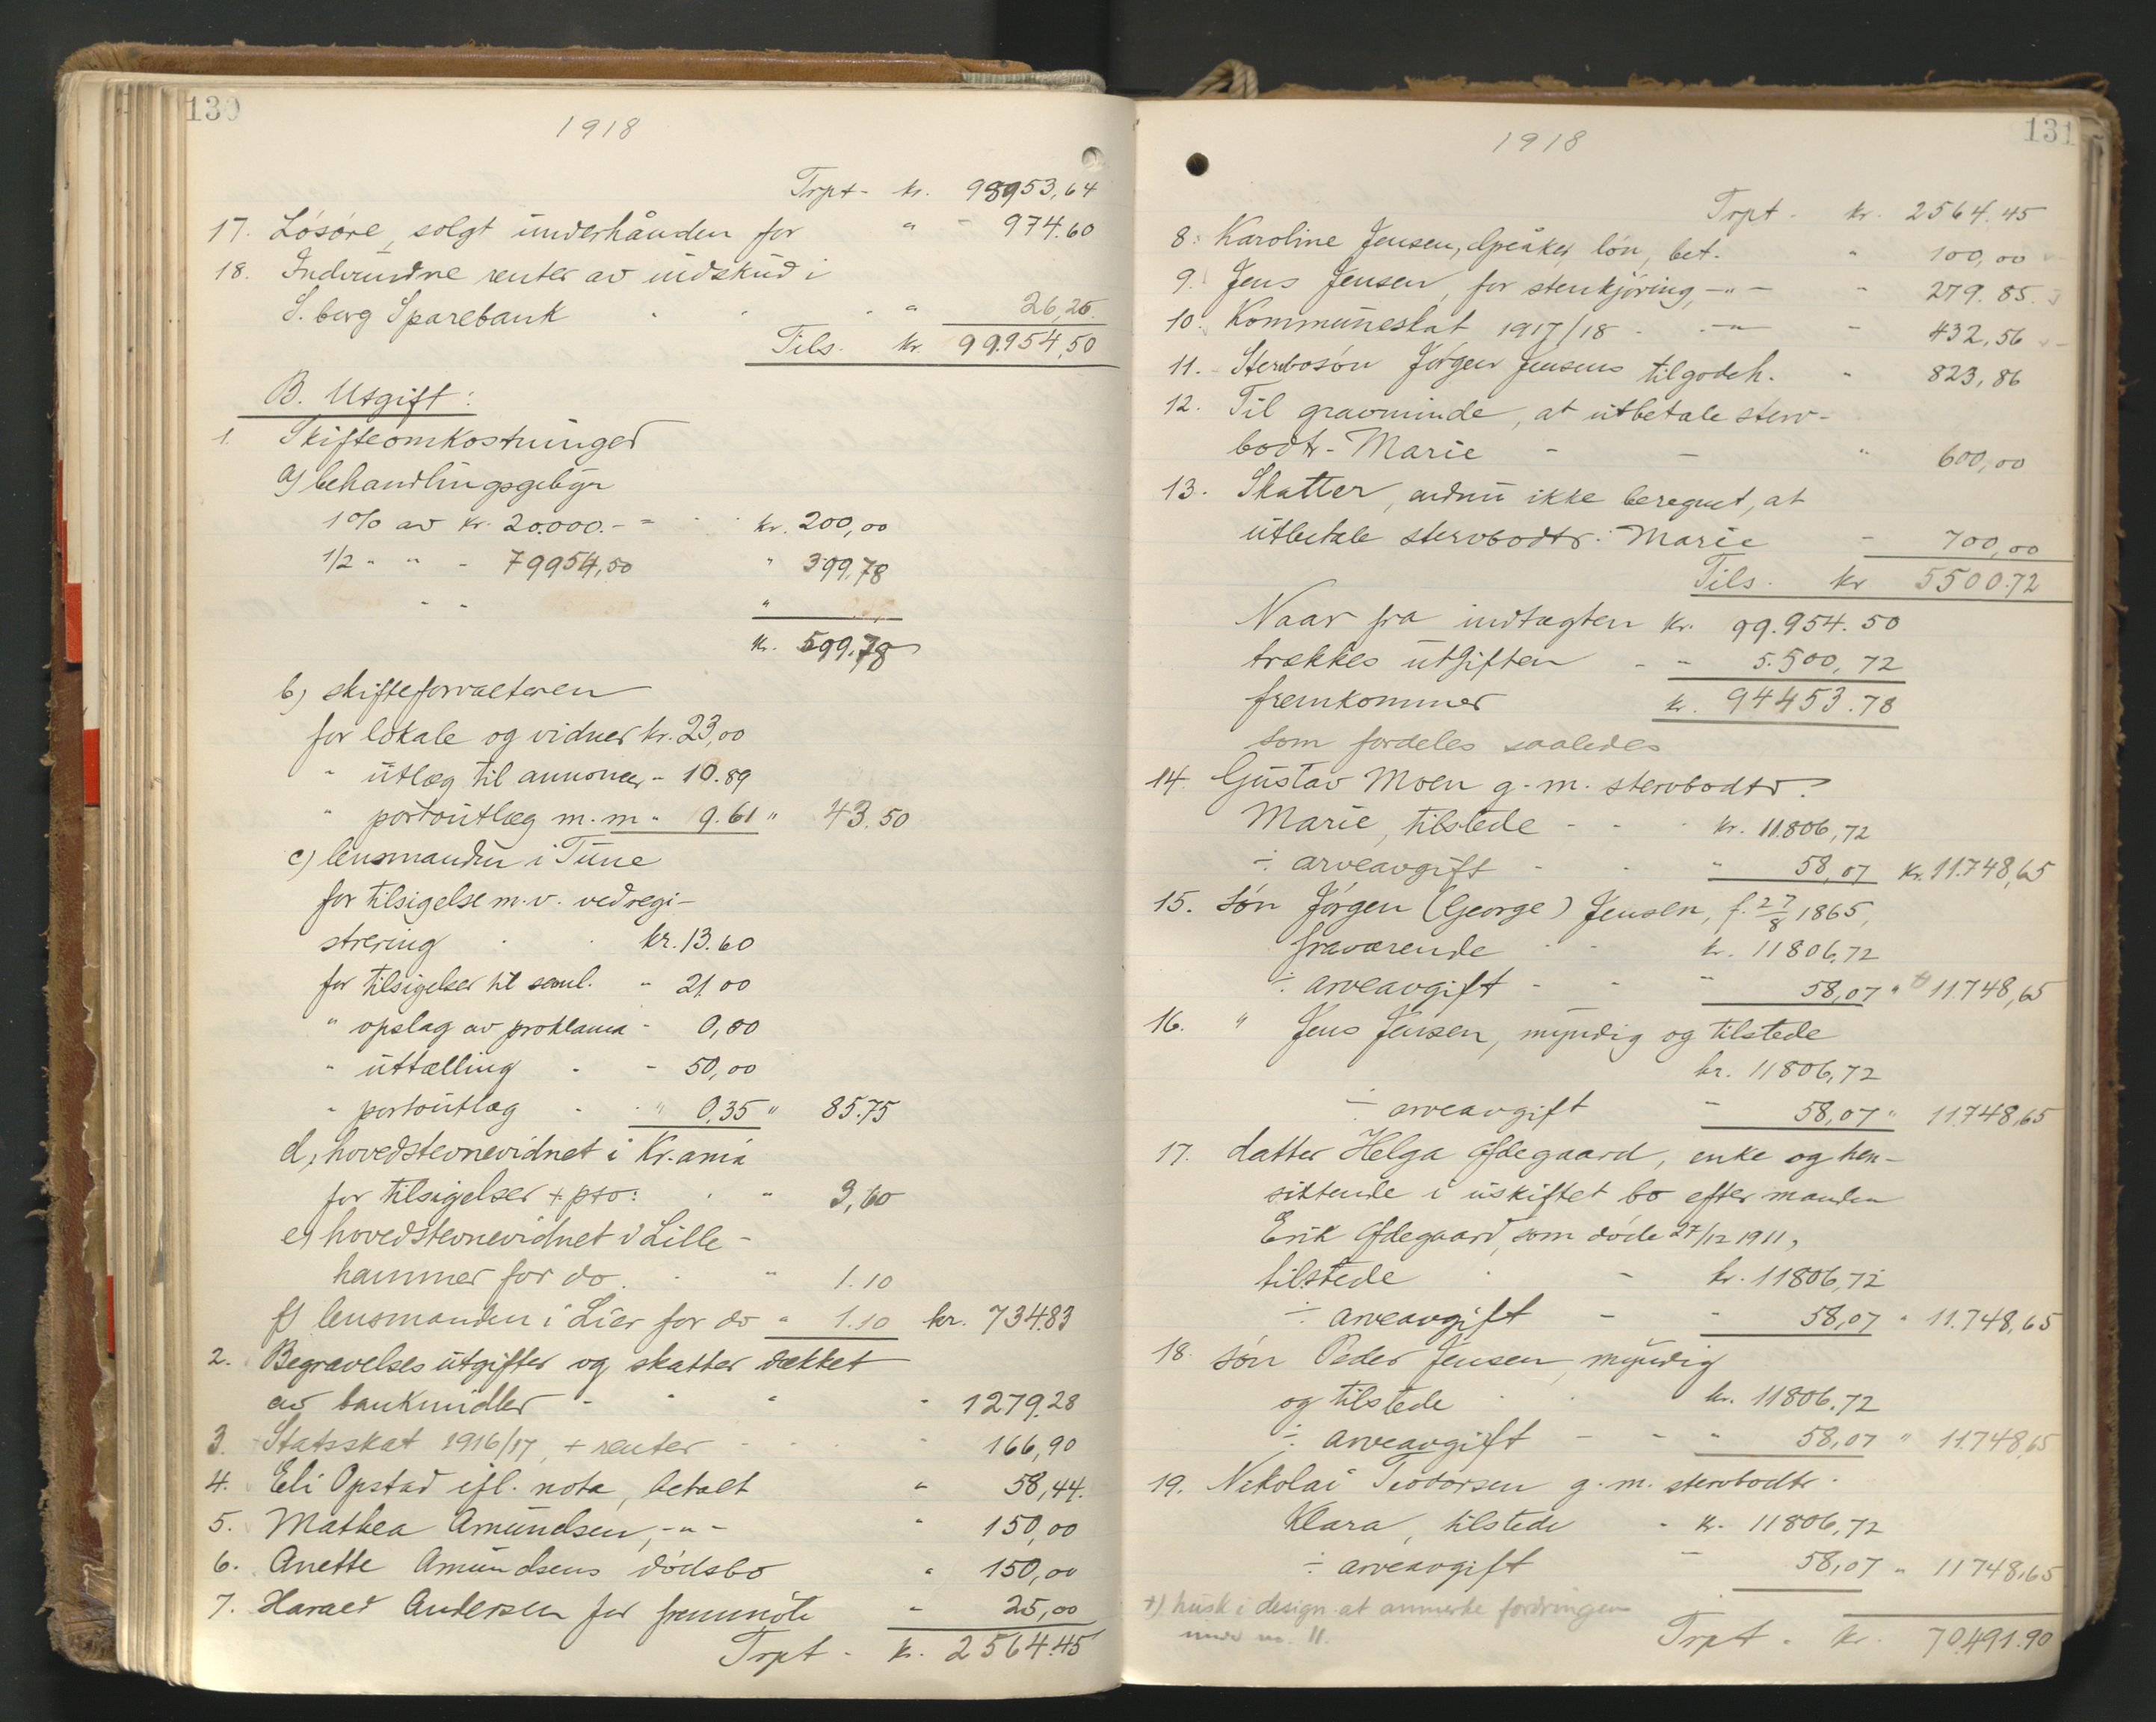 130
1918
Trpt - kr. 98953,64
17. Løsøre, solgt underhånden for " - 974.60
18. Indvundne renter av indskud i
S. borg Sparebank " 26,26.
Tils. kr. 99.954,50
B. Utgift:
1. Skifteomkostninger
a) behandlingsgebyr
1% av kr. 20.000.- = kr. 200,00
1/2 " " - 79954,50 " 399,78
" " "
kr. 599,78
b) skifteforvalteren
for lokale og vidner kr. 23,00
" utlæg til annoncer - 10.89
" portoutlæg m.m " 9.61 " 43.50
c) lensmanden i Tune
for tilsigelse m.v. ved regi-
strering kr. 13.60
for tilsigelser til saml. " 21,00
" opslag av proklama - 0,80
" uttælling - 50,00
" portoutlæg " 0,35 " 85.75
d, hovedstevnevidnet i Kr.ania
for tilsigelser + pto: " 3,60
e) hovedstevnevidnet i Lille-
hammer for do. " 1.10
f) lensmanden i Lier for do " 1.10 kr. 734.83
2. Begravelsesutgifter og skatter dækket
av bankmidler - " " " 1279.28
3. Statsskat 1916/17, + renter " 166,90
4. Eli Opstad ifl. nota, betalt " 58,44.
5. Mathea Amundsen, -"- " 150,00
6. Anette Amundsens dødsbo " 150,00
7. Harald Andersen for fremmøte " 25,00
Trpt - kr. 2564.45
131
1918
Trpt - kr. 2564.45
8. Karoline Jensen, løn, bet. " 100,00
9. Jens Jensen, for stenkjøring, -"- " 279.85.
10. Kommuneskat 1917/18 - -"- - 432,56
11. Stervbosøn Jørgen Jensens tilgodeh. " 823,86
12. Til gravminde, at utbetale sterv-
bodtr. Marie - - " 600,00
13. Skatter, endnu ikke beregnet, at
utbetale stervbodtr. Marie - 700,00
Tils. kr 5500.72
Naar fra indtægten kr. 99.954.50
trækkes utgiften - " 5.500,72
fremkommer kr. 94453.78
som fordeles saaledes
14. Gustav Moen g.m. stervbodtr.
Marie, tilstede - - kr. 11.806,72
÷ arveavgift - - " 58,07 kr. 11.748,65
15. Søn Jørgen (George) Jensen, f. 27/8 1865,
fraværende kr. 11806,72
÷ arveavgift - - " 58,07 " +) 11.748,65
16. " Jens Jensen, myndig og tilstede
kr. 11806,72
÷ arveavgift - 58,07 " 11.748,65
17. datter Helga Ødegaard, enke og hen-
sittende i uskiftet bo efter manden
Erik Ødegaard, som døde 27/12 1911,
tilstede - kr. 11806,72
÷ arveavgift - - 58,07 " 11.748,65
18. søn Peder Jensen, myndig
og tilstede kr. 11806.72
÷ arveavgift - - " 58,07 " 11.748,65
19. Nikolai Teodorsen g.m. stervbodtr.
Klara, tilstede - kr. 11806,72
÷ arveavgift - 58,07 " 11748,65
+) husk i design. at anmerke fordringen
under no. 11.
Trpt - kr. 70.491.90